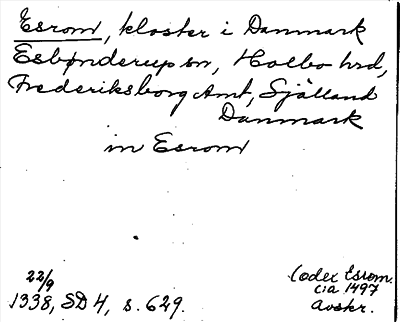 Esrom, kloster i Danmark
Esbønderup sn, Holbo hrd,
Frederiksborg Amt, Själland
Danmark
in Esrom
22/9
1338, SD 4, s. 629.
Codex Esrom.
cia 1497
Avskr.